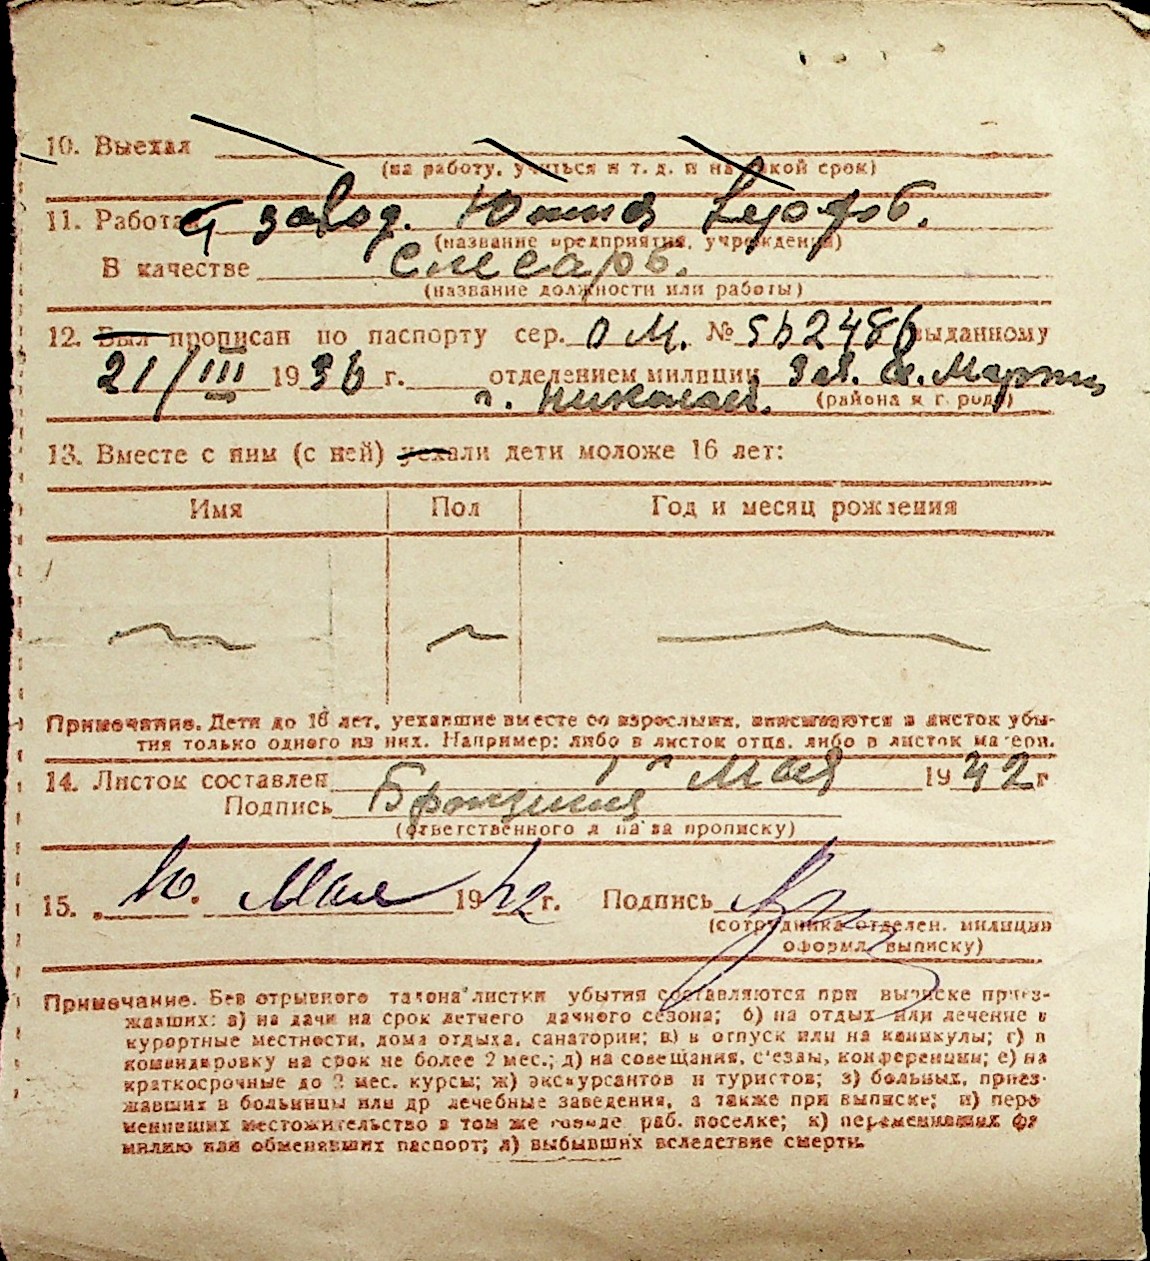 10. Выехал
(на работу, учиться и т. д. и на какой срок)
11. Работа завод.
(название предприятия, учреждения)
В качестве слесарь.
(название должности или работы)
12. Был прописан по паспорту сер. О М. № 562486 выданному
21/III 1936 г. отделением милиции
г. Николаев. (района и города)
13. Вместе с ним (с ней) уехали дети моложе 16 лет:
Имя Пол Год и месяц рождения
Примечание. Дети до 16 лет, уехавшие вместе со взрослыми, вписываются в листок убы-
тия только одного из них. Например: либо в листок отца, либо в листок матери.
14. Листок составлен Мая 1942 г
Подпись
(ответственного лица за прописку)
15. 10. Мая 1942 г. Подпись
(сотрудника отделен. милиции
оформл. выписку)
Примечание. Без отрывного талона листки убытия составляются при выписке приез-
жавших: а) на дачи на срок летнего дачного сезона; б) на отдых или лечение в
курортные местности, дома отдыха, санатории; в) в отпуск или на каникулы; г) в
командировку на срок не более 2 мес.; д) на совещания, с'езды, конференции; е) на
краткосрочные до 2 мес. курсы; ж) экскурсантов и туристов; з) больных, приез-
жавших в больницы или др лечебные заведения, а также при выписке; и) пере
менивших местожительство в том же городе раб. поселке; к) переменивших фа
милию или обменявших паспорт; л) выбывших вследствие смерти.